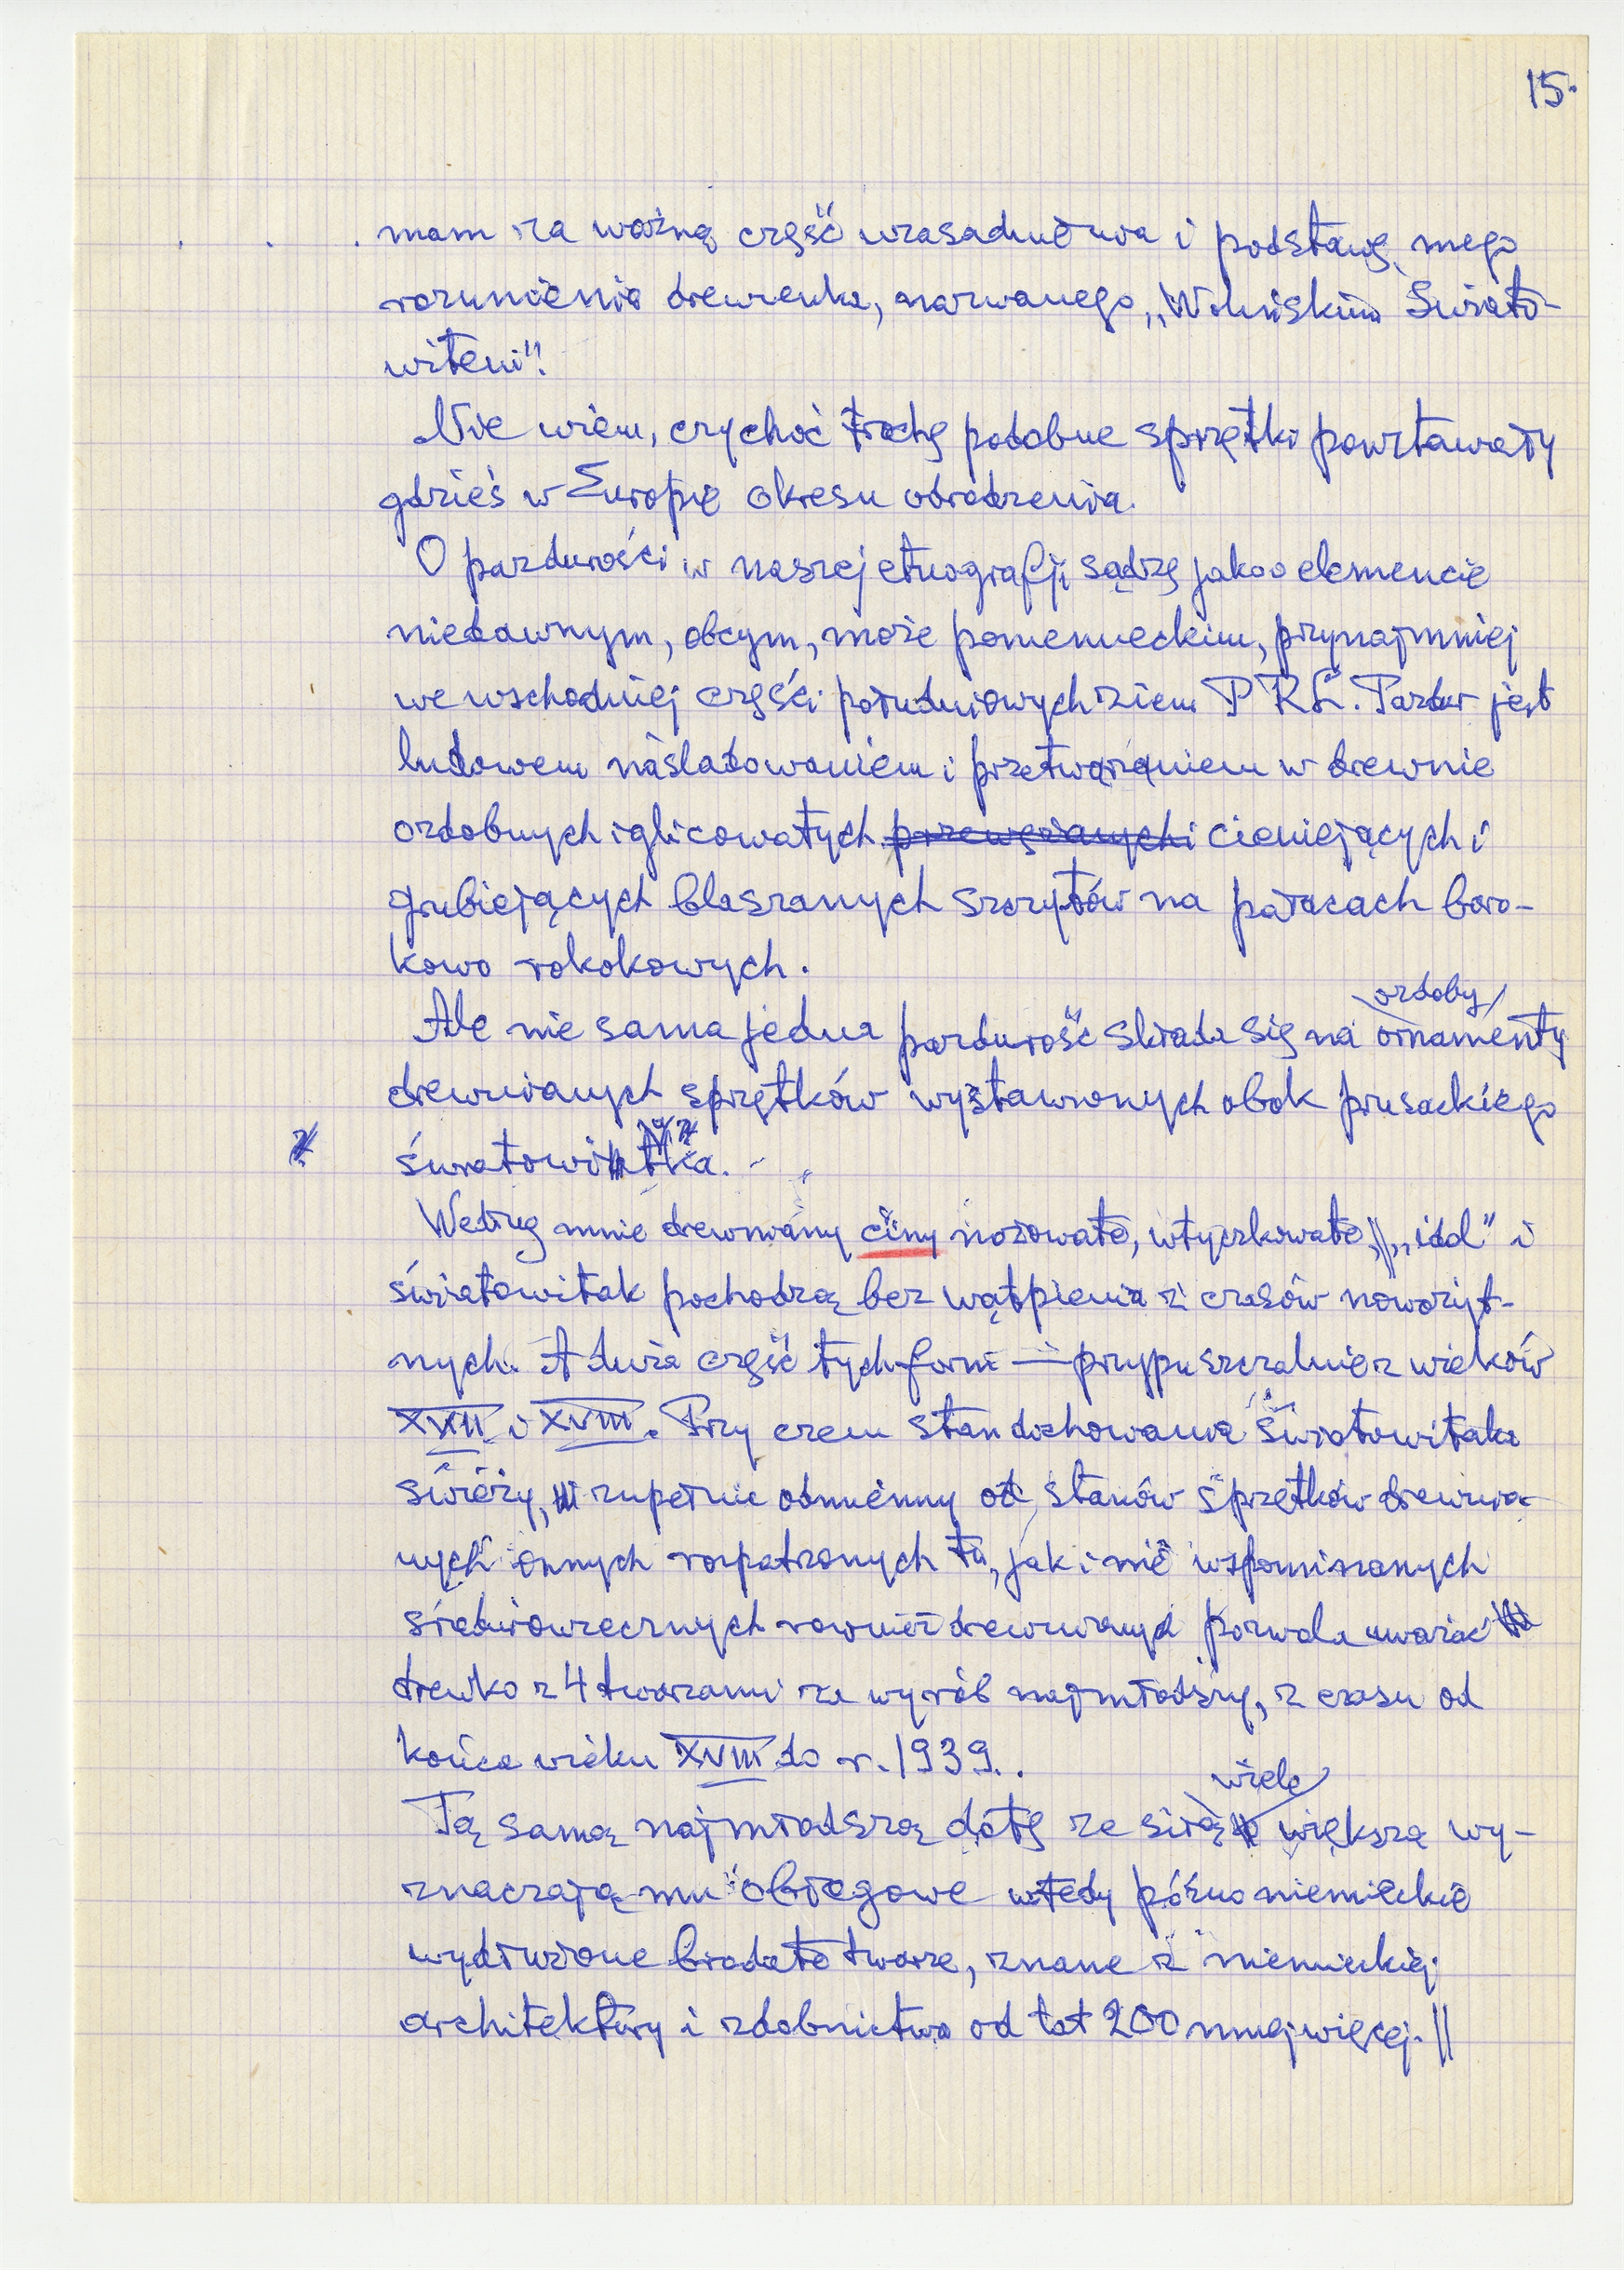 15.
mam za ważną część uzasadnienia i podstawę mego
rozumienia drewienka, nazwanego „Wolińskim Świato-
witem".
Nie wiem, czy choć trochę podobne sprzętki powstawały
gdzieś w Europie okresu odrodzenia.
O pazdurości w naszej etnografji sądzę jako o elemencie
niedawnym, obcym, może poniemieckim, przynajmniej
we wschodniej części południowych ziem PRL. Pazdur jest
ludowem naśladowaniem i przetwarzaniem w drewnie
ozdobnych iglicowatych przewężanych i cieniejących i
grubiejących blaszanych szczytów na pałacach baro-
kowo rokokowych.
ozdoby
Ale nie sama jedna pazdurość składa się na ornamenty
drewnianych sprzętków wystawionych obok prusackiego
światowitka.
Według mnie drewniany nożowate, wtyczkowate, „idol" i
światowitak pochodzą bez wątpienia z czasów nowożyt-
nych. A duża część tych form — przypuszczalnie z wieków
XVII i XVIII. Przy czem stan dochowania światowitaka
świeży, zupełnie odmienny od stanów sprzętków drewnia-
nych innych rozpatrzonych tu, jak i nie wspominanych
średniowiecznych również drewnianych pozwala uważać
drewko z 4 twarzami za wyrób najmłodszy, z czasu od
końca wieku XVIII do r. 1939.
wiele
Tą samą najmłodszą datę ze siłą większą wy-
znaczają mu obiegowe wtedy późno niemieckie
wydłużone brodate twarze, znane z niemieckiej
architektury i zdobnictwa od lat 200 mniej więcej. ||